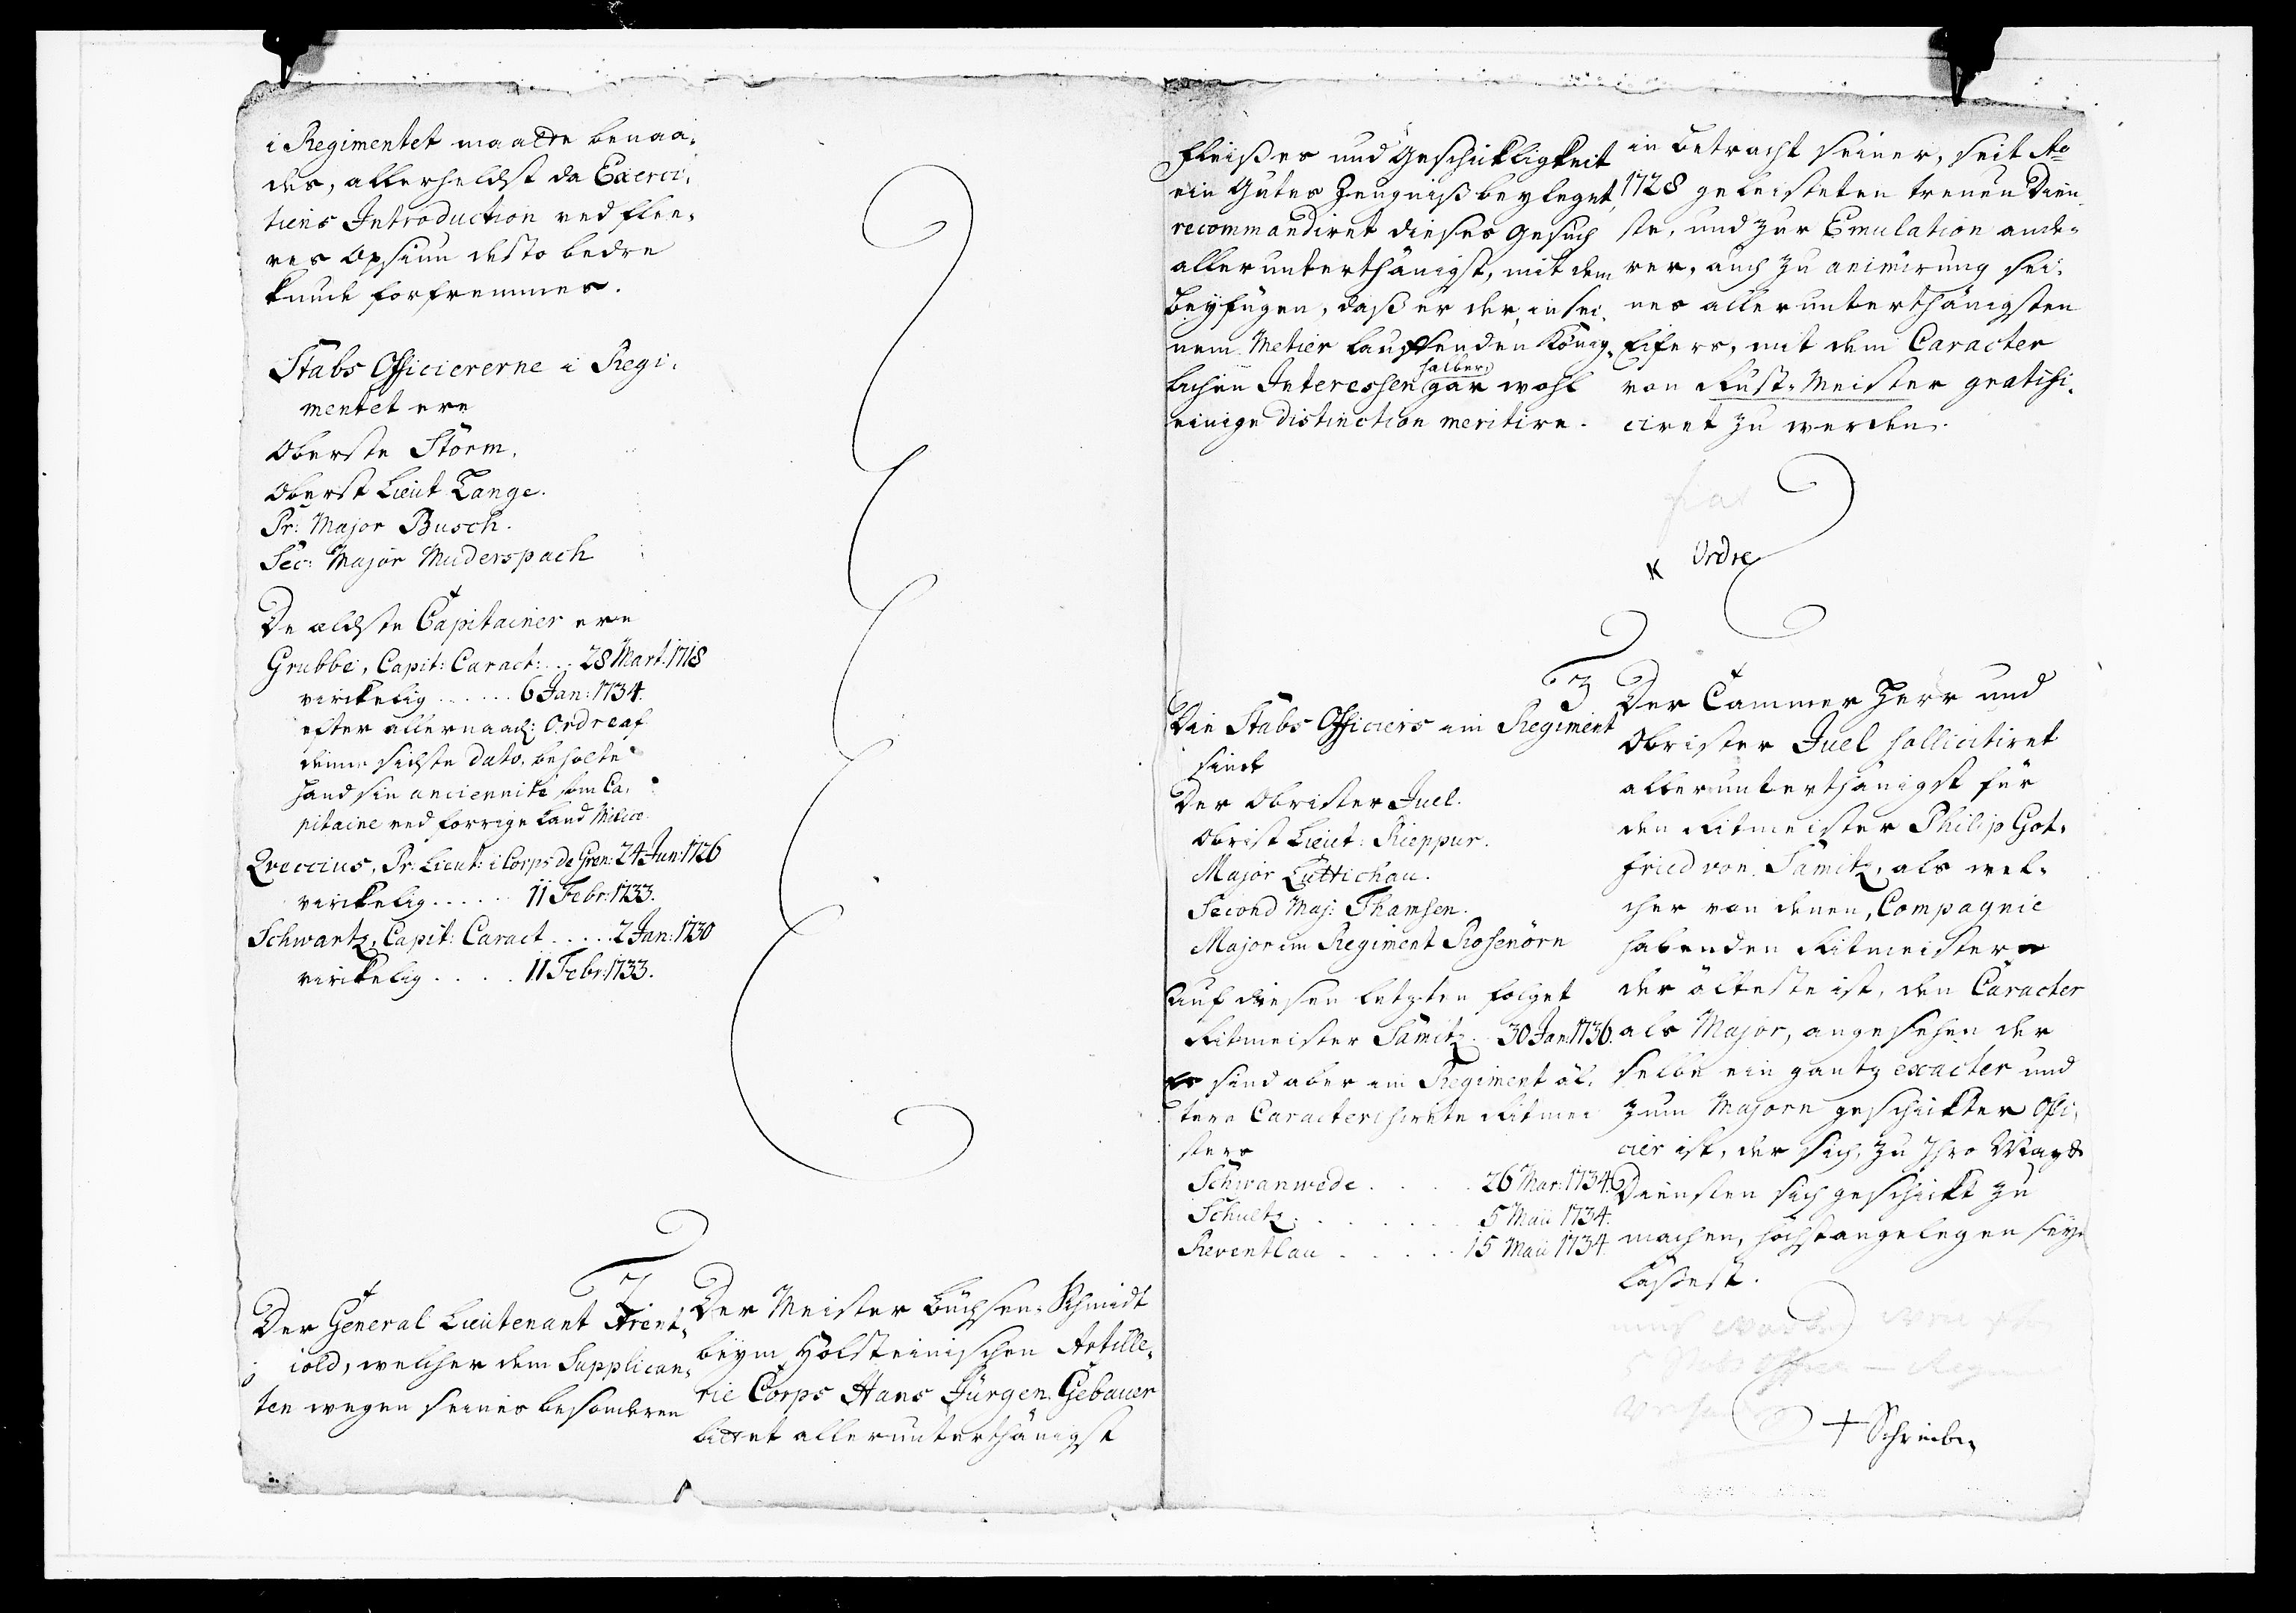 i Regimentet maatte benaa-
des, allerheldst da Exerci-
tiens Introduction ved flee-
res Opsiun desto bedre
kunde forfremmes.
Stabs Officiererne i Regi-
mentet ere
Oberste Storm.
Oberst Lieut Lange.
Pr: Major Busch.
Sec: Major Muderspach
De ældste Capitainer ere
Grubbe, Capit: Caract: . . . 28 Mart. 1718
virckelig . . . . . . 6 Jan: 1734.
efter allernaad: Ordre af
denne sidste dato, beholte
hand sin anciennite som Ca-
pitaine ved forrige Land Milice.
Qveccius, Pr. Lieut: i Corps de Gren: 24 Jun: 1726
virckelig . . . . . 11 Febr: 1733.
Schwartz, Capit: Caract . . . . . 2 Jan: 1730
virckelig . . . . . 11 Febr: 1733.
2.
Der General Lieutenant Arent-
iold, welcher dem Supplican-
ten wegen seines besonderen
Der Meister Büchsen-Schmidt
beym Holsteinischen Artille-
rie Corps Hans Jürgen Gebauer
bittet allerunterthänigst
Fleißes und Geschickligkeit
ein Gutes Zeugniß beyleget,
recommandiret dieses Gesuch
allerunterthänigst, mit dem
Beyfügen, daß er der, in sei-
nem Metier lauffenden König-
lichen Interessen halber gar wohl
einige distinction meritire.
in Betracht seiner, seit Ao
1728 geleisteten treuen Dien-
ste, und zur Emulation ande-
rer, auch zu animirung sei-
nes allerunterthänigsten
Eifers, mit dem Caracter
von Rüst-Meister gratifi-
ciret zu werden.
fiat
Ordre
3
Die Stabs Officiers im Regiment
sind
Der Obrister Juel.
Obrist Lieut: Rieppur.
Major Lüttichau.
Second Maj: Thamsen.
Major im Regiment Rosenörn
Auf diesen letzten folget
Ritmeister Sämitz . . 30 Jan: 1736.
Es sind aber im Regiment äl-
tere Caracterisirete Ritmei
sters
Schwanwede . . . . . 26 Mar: 1734.
Schultz . . . . . . . 5 Maii 1734.
Reventlau . . . . . 15 Maii 1734.
Der Cammer Herr und
Obrister Juel sollicitiret
allerunterthänigst für
den Ritmeister Philip Got-
fried von Sämitz, als wel-
cher von denen, Compagnie
habenden Ritmeistern
der älteste ist, den Caracter
als Major, angesehen der
selbe ein gantz exacter und
zum Majorn geschickter Offi-
cier ist, der sich, zu Ihro Mayst
Diensten sich geschickt zu
machen, höchstangelegen seyn
läßest.
Schreiben